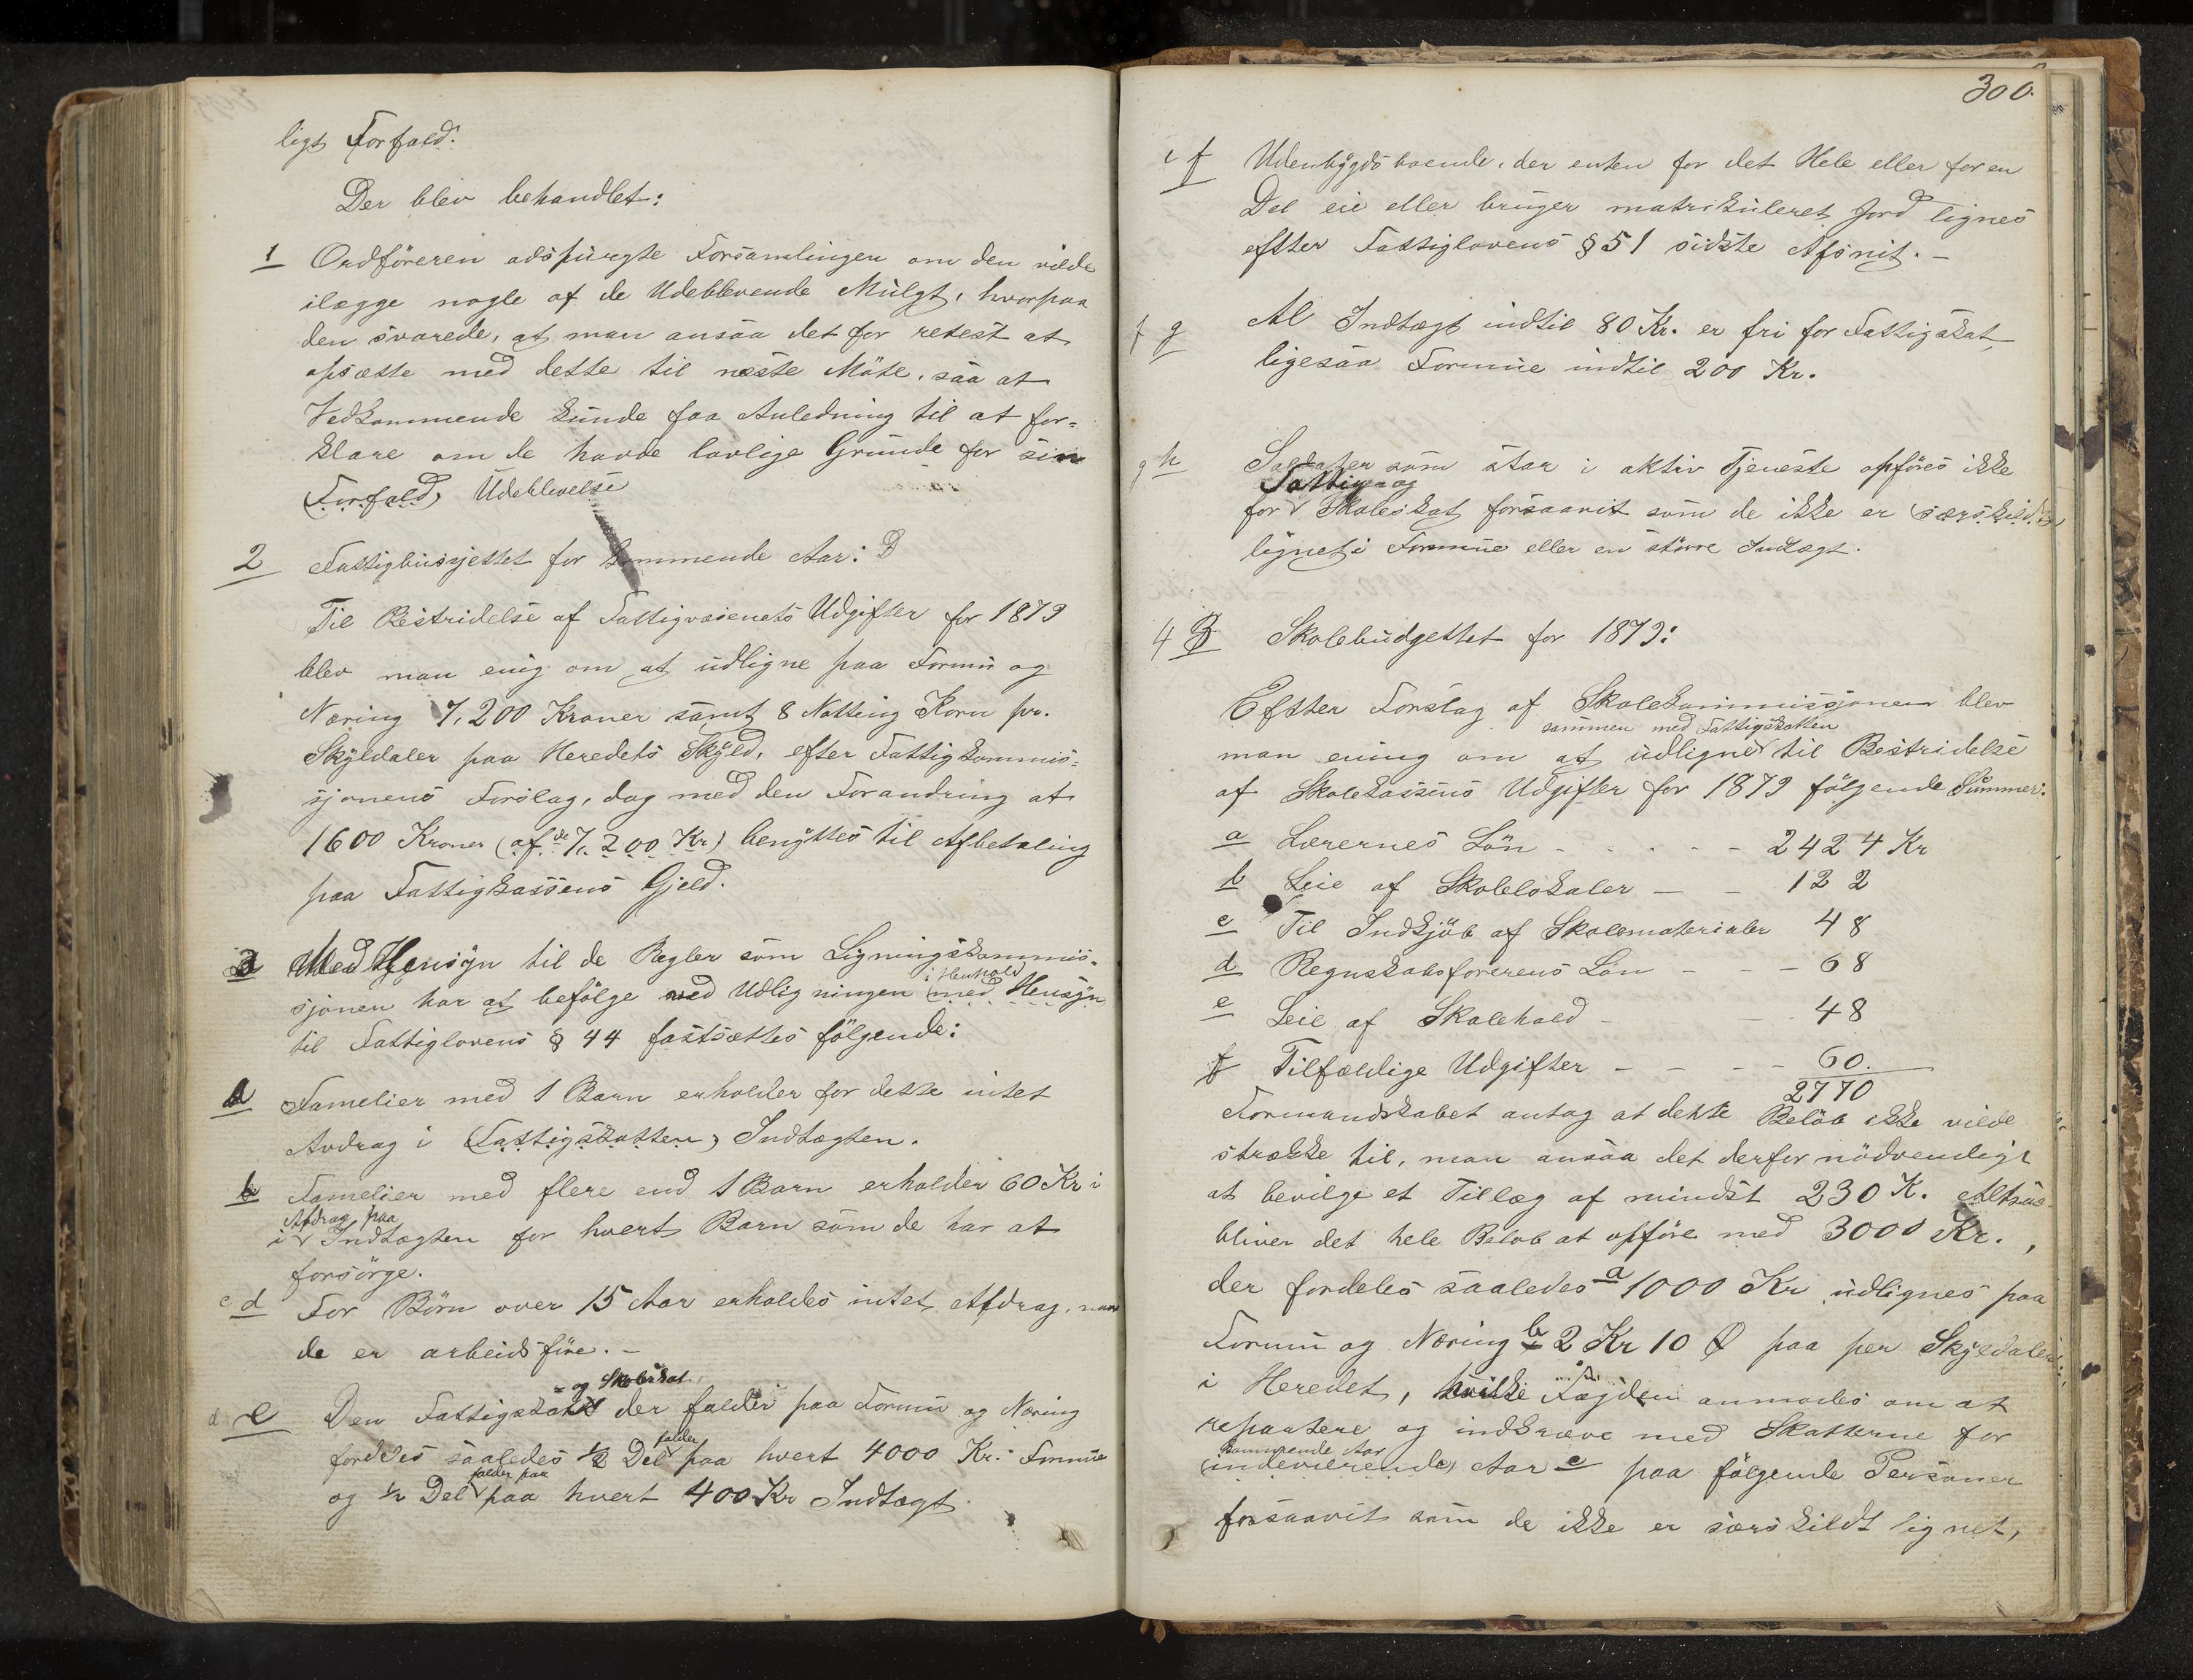 ligt Forfald.
Der blev behandlet:
1 Ordföreren adspurgte Forsamlingen om den vilde
ilægge nogle af de Udeblevende Mulgt, hvorpaa
den svarede, at man ansaa det for retest at
opsætte med dette til næste Möte, saa at
Vedkommende kunde faa Anledning til at for=
klare om de havde lovlige Grunde for sin
(Forfald) Udeblivelse
2 Fattigbusjettet for kommende Aar:
Til Bestridelse af Fattigvæsenets Udgifter for 1879
blev man enig om at udligne paa Formu og
Næring 7,200 Kroner samt 8 Notting Korn pr.
Skyldaler paa Heredets Skyld, efter Fattigkommis=
sjonens Forslag, dog med den Forandring at
1600 Kroner (af de 7,200 Kr) benyttes til Afbetaling
paa Fattigkassens Gjeld.
3 Med Hensyn til de Regler som Ligningskommis=
sjonen har at befölge ved Udligningen i Henhold (med Hensyn
til Fattiglovens § 44 fastsættes följende:
a Famelier med 1 Barn erholder for dette intet
Avdrag i (Fattigskatten) Indtægten.
b Famelier med flere end 1 Barn erholder 60 Kr i
Afdrag paa
i Indtægten for hvert Barn som de har at
forsörge.
c d For Börn over 15 Aar erholdes intet Afdrag, naar
de er arbeidsföre. -
= og Skoleskat
d e Den Fattigskat der falder paa Formu og Næring
fordeles saaledes 1/2 Del falder paa hvert 4000 Kr. Formue
falder paa
og 1/2 Del paa hvert 400 Kr Indtægt.
300.
e f Udenbygds boende, der enten for det Hele eller for en
Del eie eller bruger matrikuleret Jord lignes
efter Fattiglovens § 51 sidste Afsnit. -
f g Al Indtægt indtil 80 Kr. er fri for Fattigskat,
ligesaa Formue indtil 200 Kr.
g h Soldater som staa i aktiv Tjeneste opföres ikke
Fattig= og
for Skoleskat forsaavit som de ikke er (særskildt)
lignet i Formue eller en större Indtægt.
4 3 Skolebudgettet for 1879:
Efter Forslag af Skolekommissjonen blev
sammen med Fattigskatten
man ening om at udligne til Bestridelse
af Skolekassens Udgifter for 1879 fölgende Summer:
a Lærernes Lön - - - - - 2424 Kr
b Leie af Skolelokaler - - 122
c Til Indkjöb af Skolematerialer 48
d Regnskabsforerens Lön - - - 68
e Leie af Skolehold - - 48
f Tilfældige Udgifter - - - - 60.
2770
Formandskabet antog at dette Belöb ikke vilde
strække til, man ansaa det derfor nödvendigt
at bevilge et Tillæg af mindst 230 K. Altsaa
bliver det hele Belöb at opföre med 3000 Kr.,
der fordeles saaledes a 1000 Kr udlignes paa
Formu og Næring b 2 Kr 10 Ø paa per Skyldaler
i Heredet, hvilke Fogden anmodes om at
repartere og indkræve med Skatterne for
kommende Aar
(indeværende) Aar c paa fölgende Personer
forsaavit som de ikke er særskildt lignet,